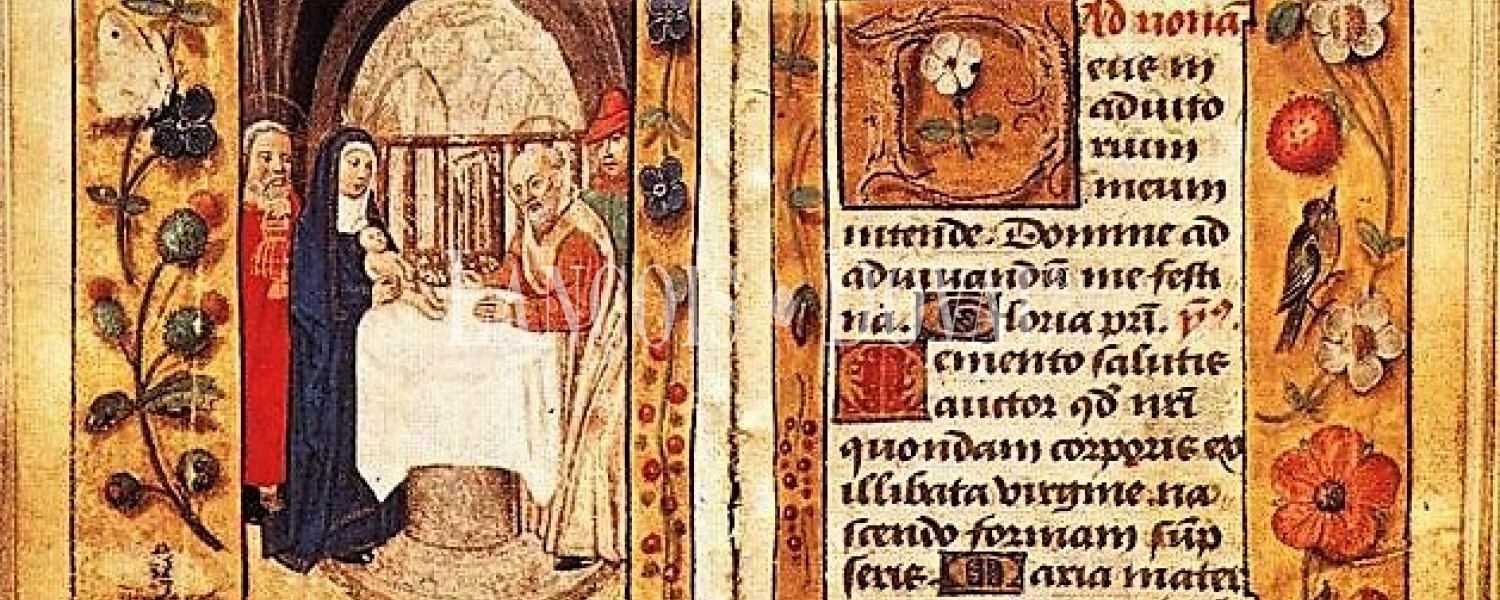 Ad nonã
Deus in
adiuto
rium
meum
intende. Domine ad
adiuuandũ me festi
na. Gloria pr̃i. ps̃.
Memento salutis
auctor qd̃ nr̃i
quondam corporis ex
illibata virgine na
scendo formam sũp
seris. Maria mater
LANÇOIS DOVAL